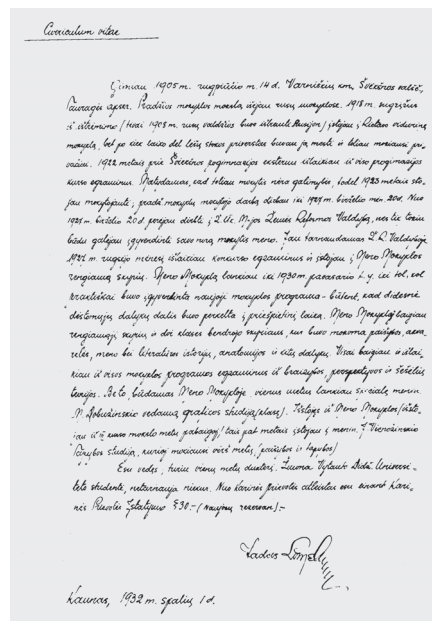 Curriculum vitae
Gimiau 1905 m. rugpiūčio m. 14 d. Varniškių km., Švėkšnos valšč.,
Tauragės apskr. Pradžios mokyklos mokslą išėjau rusų mokykloje. 1918 m. sugrįžus
iš ištrėmimo (tėvai 1905 m. rusų valdžios buvo ištremti Rusijon) įstojau į Rietavo vidurinę
mokyklą, bet po kiek laiko dėl lėšų stokos priverstas buvau ją mesti ir toliau mokiausi pri-
vačiai. 1922 metais prie Švėkšnos progimnazijos eksternu išlaikiau iš viso progimnazijos
kurso egzaminus. Matydamas, kad toliau mokytis nėra galimybės, todėl 1923 metais sto-
jau mokytojauti; pradž. mokyklų mokytojo darbą dirbau iki 1925 m. birželio mėn. 20 d. Nuo
1925 m. birželio 20 d. perėjau dirbti į Ž. Ūk. M-jos Žemės Reformos Valdybą, nes tik tokiu
būdu galėjau įgyvendinti savo norą mokytis meno. Jau tarnaudamas Ž. R. Valdyboje
1927 m. rugsėjo mėnesį išlaikiau konkurso egzaminus ir įstojau į Meno Mokyklos
rengiamąjį skyrių. Meno Mokyklą lankiau iki 1930 m. pavasario t. y. iki tol, kol
praktiškai buvo įgyvendinta naujoji mokyklos programa – būtent, kad didesnė
dėstomųjų dalykų dalis buvo perkelta į priešpietinį laiką. Meno Mokykloj baigiau
rengiamąjį skyrių ir dvi klases bendrojo skyriaus, kur buvo mokoma paišybos, akva-
relės, meno bei literatūros istorijų, anatomijos ir kitų dalykų. Visai baigiau ir išlai-
kiau iš visos mokyklos programos egzaminus iš braižybos, perspektyvos ir šešėlių
teorijos. Be to, būdamas Meno Mokykloje vienus metus lankiau specialę menin.
M. Dobužinskio vedamą grafikos studiją (klasę). Išstojęs iš Meno Mokyklos (išsto-
jau iš III kurso mokslo metų pabaigoj) taip pat metais įstojau į menin. J. Vienožinskio
tapybos studiją, kurioj mokiausi virš metų (paišybos ir tapybos)
Esu vedęs, turiu vienų metų dukterį. Žmona, Vytauto Didž. Universi-
teto studentė, netarnauja niekur. Nuo karinės prievolės atleistas esu einant Kari-
nės Prievolės Įstatymo § 30 – (Naujokų rezervan).–
Tadeos
Kaunas, 1932 m. spalių 1 d.